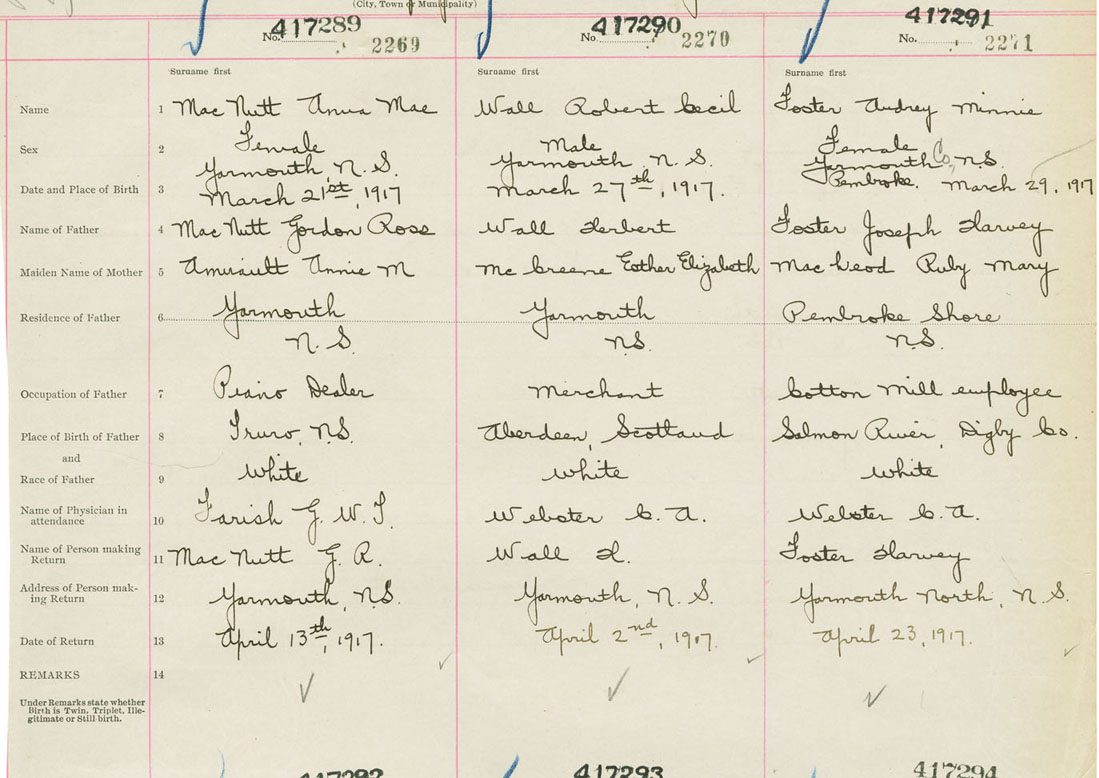 (City, Town or Municipality)
417289 417290 417291
No. 2269 No. 2270 No. 2271
Surname first Surname first Surname first
Name 1 Mac Nutt Anna Mae Wall Robert Cecil Foster Audrey Minnie
Sex 2 Female Male Female
Yarmouth, N.S. Yarmouth, N.S. Yarmouth Co, N.S.
Date and Place of Birth 3 March 21st, 1917 March 27th, 1917. Pembroke. March 29, 1917
Name of Father 4 Mac Nutt Gordon Ross Wall Herbert Foster Joseph Harvey
Maiden Name of Mother 5 Amirault Annie M Mc Greene Esther Elizabeth Mac Leod Ruby Mary
Residence of Father 6 Yarmouth Yarmouth Pembroke Shore
N.S. N.S. N.S.
Occupation of Father 7 Piano Dealer Merchant Cotton Mill employee
Place of Birth of Father 8 Truro, N.S. Aberdeen, Scotland Salmon River, Digby Co.
and
Race of Father 9 White White White
Name of Physician in
attendance 10 Farish G. W. T. Webster C. A. Webster C. A.
Name of Person making
Return 11 Mac Nutt G. R. Wall H. Foster Harvey
Address of Person mak-
ing Return 12 Yarmouth, N.S. Yarmouth, N.S. Yarmouth North, N.S.
Date of Return 13 April 13th, 1917. April 2nd, 1917. April 23, 1917.
REMARKS 14
Under Remarks state whether
Birth is Twin, Triplet, Ille-
gitimate or Still birth.
417292 417293 417294